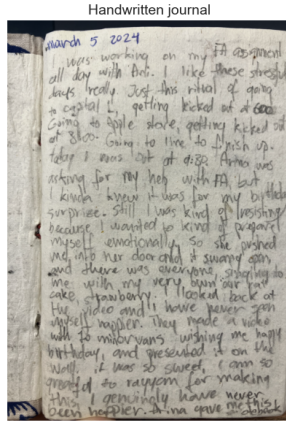 Handwritten journal
march 5 2024
I was working on my FA assignment
all day with Ani. I like these stressful
days really. Just this ritual of going
to capital 1, getting kicked out at 6:00
Going to Apple store, getting kicked out
at 8:00. Going to line to finish up.
today I was out at 9:30. Arina was
asking for my help with FA, but
I kinda knew it was for my birthday
surprise. Still I was kind of insisting
because I wanted to kind of prepare
myself emotionally, so she pushed
me into her door and it swang open
and there was everyone, singing to
me with my very own
cake, strawberry. I looked back at
the video and I have never seen
myself happier. They made a video
with 10 minorvans wishing me happy
birthday, and presented it on the
wall. it was so sweet, I am so
grateful to rayyom for making
this. I genuinely have never
been happier. Arina gave me this